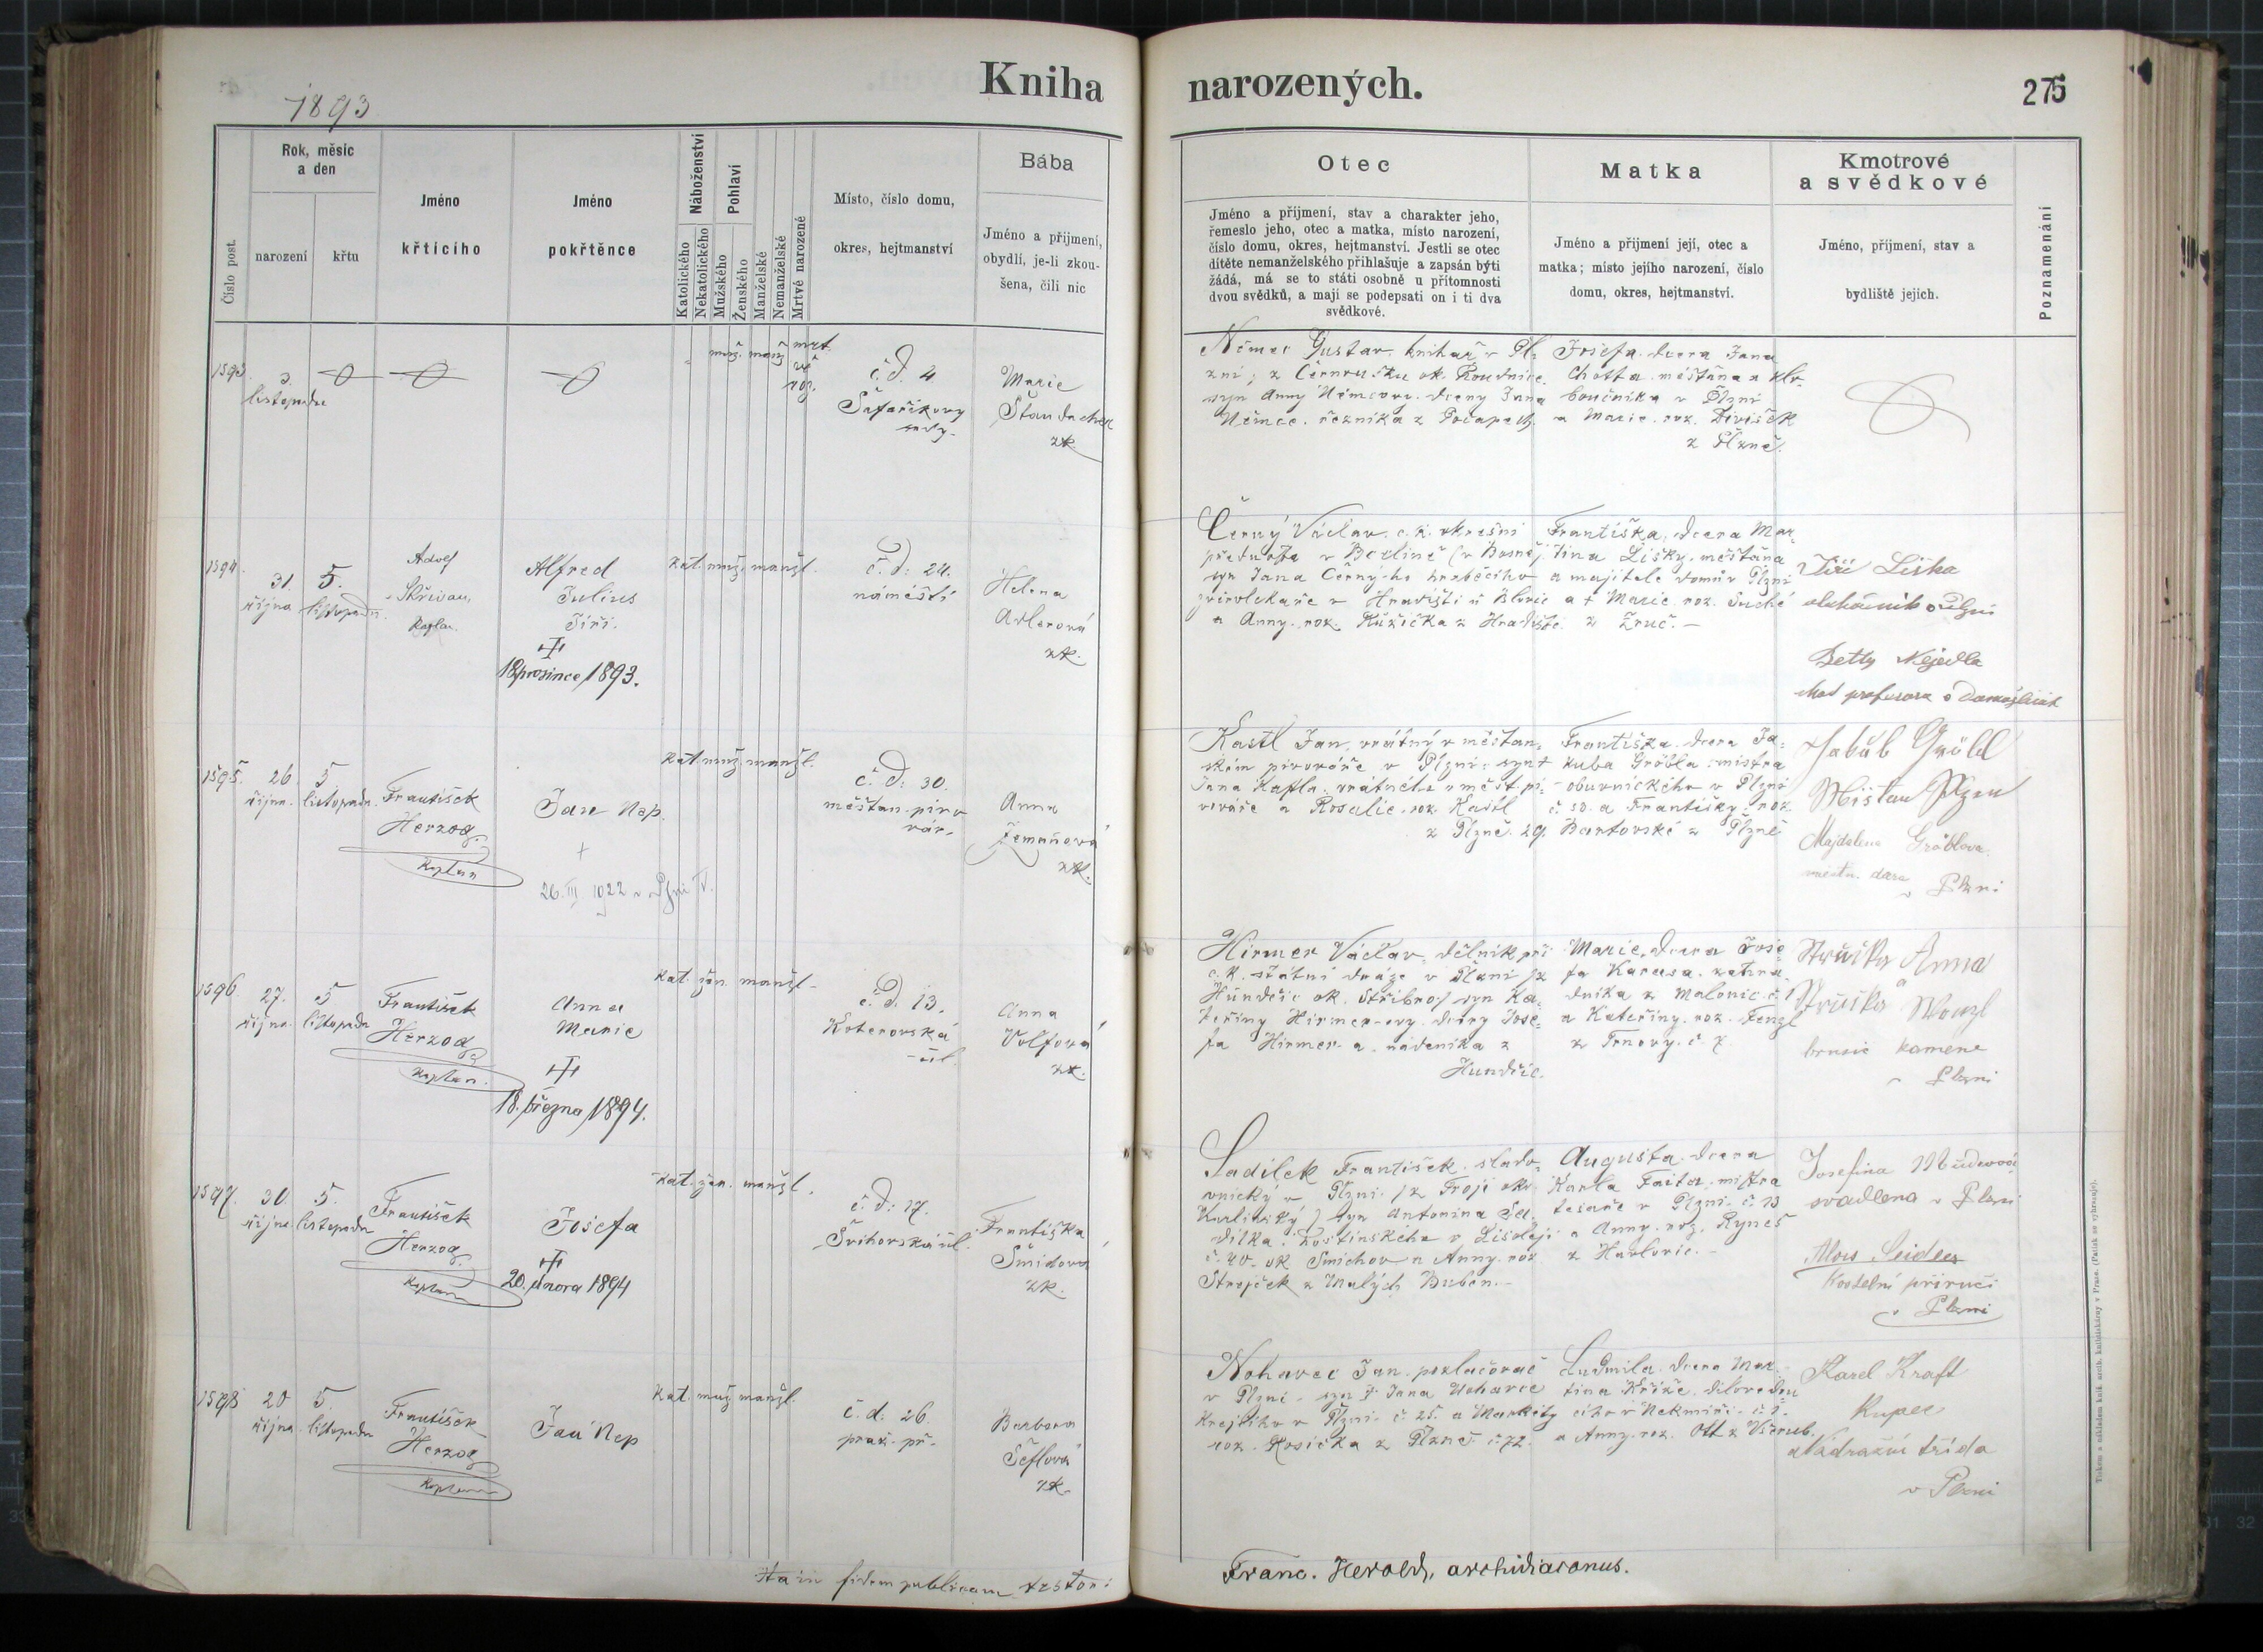 Kniha narozených.
275
1893
Číslo post.
Rok, měsíc
a den
narození
křtu
Jméno
křtícího
Jméno
pokřtěnce
Náboženství
Katolického
Nekatolického
Pohlaví
Mužského
Ženského
Manželské
Nemanželské
Mrtvě narozené
Místo, číslo domu,
okres, hejtmanství
Bába
Jméno a příjmení,
obydlí, je-li zkou-
šena, čili nic
Otec
Jméno a příjmení, stav a charakter jeho,
řemeslo jeho, otec a matka, místo narození,
číslo domu, okres, hejtmanství. Jestli se otec
dítěte nemanželského přihlašuje a zapsán býti
žádá, má se to státi osobně u přítomnosti
dvou svědků, a mají se podepsati on i ti dva
svědkové.
Matka
Jméno a příjmení její, otec a
matka; místo jejího narození, číslo
domu, okres, hejtmanství.
Kmotrové
a svědkové
Jméno, příjmení, stav a
bydliště jejich.
Poznamenání
1593.
3.
listopadu
muž. manž.
č. d. 4
Šafaříkovy
sady.
Marie
zk.
Němec Gustav, knihař v Pl-
zni; z Černoušku ok. Roudnice.
syn Anny Němcovy, dcery Jana
Němce, řezníka z Počapel.
Josefa, dcera Jana
Chotta, měšťana a klo-
boučníka v Plzni
a Marie roz.
z Plzně.
1594.
31.
října
5.
listopadu.
Adolf
Skřivan,
kaplan.
Alfred
Julius
Jiří.
18 prosince 1893.
kat. muž. manžl.
č. d: 24.
náměstí
Helena
Adlerová
zk.
Černý Václav, c. k. okresní
přednosta v (v Bosně)
syn Jana Černýho hraběcího
zvěrolékaře v Hradišti u Blovic
a Anny roz. Růžička z Hradiště.
Františka, dcera Mar-
tina Lišky, měšťana
a majitele domu v Plzni
a + Marie roz. Suché
z Zruč.-
Jiří Liška
v Plzni
Betty Nejedla
choť profesora v Domažlicích
1595. 26.
října.
5.
listopadu.
František
Herzog.
Kaplan
Jan Nep.
+
26. III 1922 v Plzni IV.
kat. muž. manžl.
č. d: 30.
měšťan. pivo
vár.
Anna
Zemanová
zk.
Kastl Jan, vrátný v měšťan-
ském pivováře v Plzni: syn +
Jana Kastla, vrátného v měšť. pi-
vováře a Rosalie roz. Kastl
z Plzně. 29.
Františka dcera Ja-
kuba Gröbla mistra
obuvnického v Plzni
č. 50. a Františky roz
Bartovské z Plzně
Jakub Gröbl
Plzeň
Majdalena Gröblova
v Plzni
1596.
27.
října
5
listopadu
František
Herzog
Kaplan.
Anna
Marie
18. března 1894.
kat. žen. manžl.
č. d. 13.
Koterovská
ul.
Anna
Volfova
zk.
Hirmer Václav, dělník při
c. k. státní dráze v Plzni (z
Hundčic ok. Stříbro) syn Ka-
teřiny Hirmer-ovy, dcery Jose-
fa Hirmer-a, nádeníka z
Hundčic.
Marie, dcera Jose
fa Karasa, zahra-
dníka z Malonic č. 1
a Kateřiny roz. Fenzl
z Trnovy. č. 7.
Anna
brusič kamene
v Plzni
1597. 30
října
5.
listopadu
František
Herzog.
Kaplan
Josefa
20. února 1894
kat. žen. manžl.
č. d: 17.
Švihovská ul.
Františka
Šmídova
zk.
Sadílek František, slado-
vnický v Plzni (z Troji okr.
Karlínský) syn Antonína Sa-
dílka, hostinského v Lisoleji
č. 40. ok. Smíchov a Anny roz
Strejček z Malých Buben.-
Augusta, dcera
Karla Faita, mistra
tesaře v Plzni č. 13
a Anny roz. Ryneš
z Havlovic.-
Josefina
švadlena v Plzni
Alois Seidler
Kostelní příručí
v Plzni
1598 20
října
5.
listopadu
František
Herzog
Kaplan
Jan Nep
kat. muž manžl.
č. d: 26.
praž. př.
Barbora
Šeflová
zk.
Nohavec Jan, pozlačovač
v Plzni - syn + Jana Nohavce
krejčího v Plzni č. 25. a Markéty
roz. Kosička z Plzně č. 72.
Ludmila, dcera Mar-
tina Kříže, dílovedou
cího v Nekmíři č. 1.
a Anny roz. Ott z Všerub.
Karel Kraft
Kupec
Nádražní třída
v Plzni
Ita in fidem publicam testor: Franc. Herold, archidiaconus.